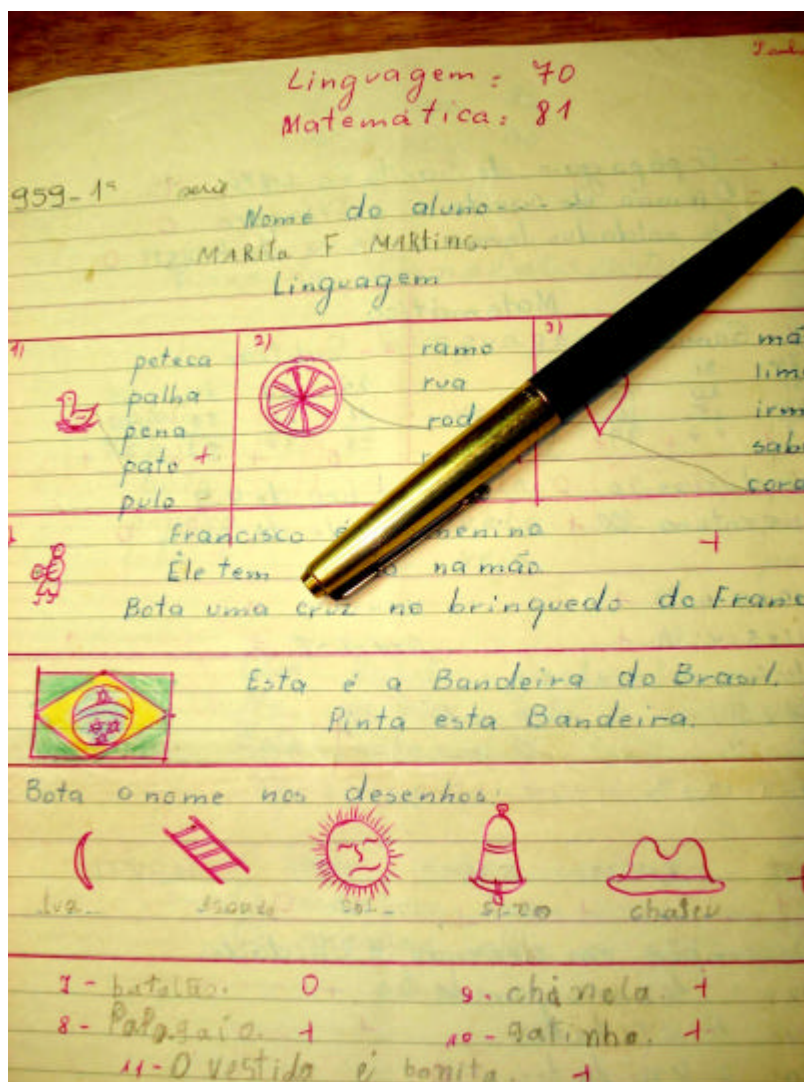 Linguagem: 70
Matemática: 81
959-1ª serie
Nome do aluno
MARIla F MARtins.
Linguagem
1) peteca
palha
pena
pato +
pulo
2) ramo
rua
rod
3) mã
lim
irm
sab
cora
Francisco é menino +
Êle tem na mão
Bota uma cruz no brinquedo do Franc
Esta é a Bandeira do Brasil.
Pinta esta Bandeira.
Bota o nome nos desenhos:
sol sino chapeu +
7 - batalão. 0
8 - Papagaio. +
9 - chinela. +
10 - gatinho. +
11 - O vestido é bonita. +